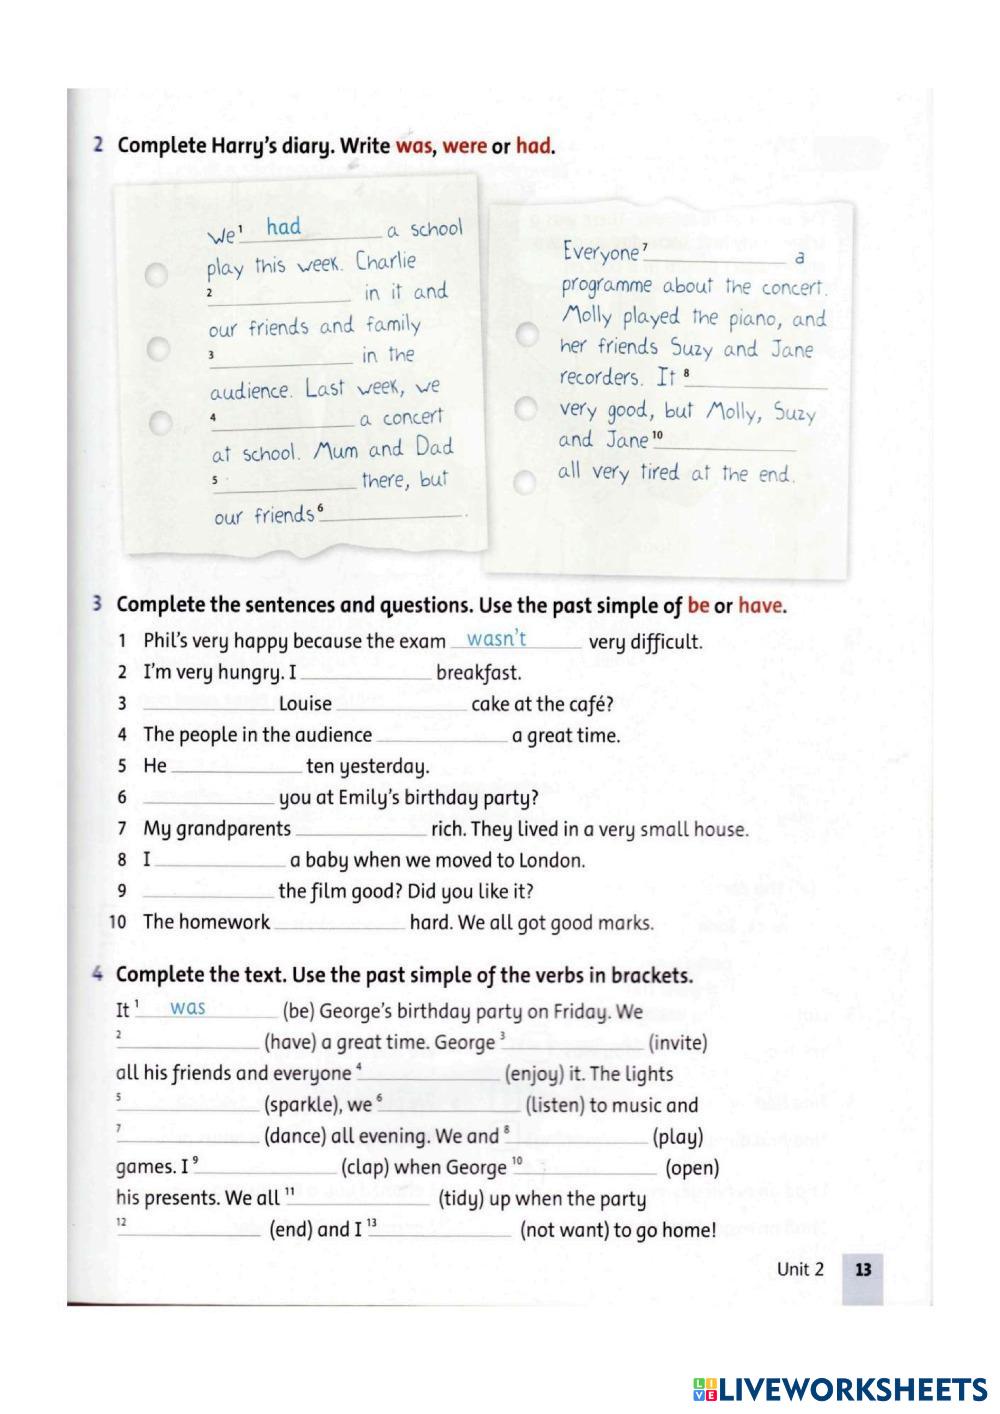 2 Complete Harry's diary. Write was, were or had.
We 1 had a school
play this week. Charlie
2 ____________ in it and
our friends and family
3 ____________ in the
audience. Last week, we
4 ____________ a concert
at school. Mum and Dad
5 ____________ there, but
our friends 6 ____________.
Everyone 7 ____________ a
programme about the concert.
Molly played the piano, and
her friends Suzy and Jane
recorders. It 8 ____________
very good, but Molly, Suzy
and Jane 10 ____________
all very tired at the end.
3 Complete the sentences and questions. Use the past simple of be or have.
1 Phil's very happy because the exam wasn't very difficult.
2 I'm very hungry. I ____________ breakfast.
3 ____________ Louise ____________ cake at the café?
4 The people in the audience ____________ a great time.
5 He ____________ ten yesterday.
6 ____________ you at Emily's birthday party?
7 My grandparents ____________ rich. They lived in a very small house.
8 I ____________ a baby when we moved to London.
9 ____________ the film good? Did you like it?
10 The homework ____________ hard. We all got good marks.
4 Complete the text. Use the past simple of the verbs in brackets.
It 1 was (be) George's birthday party on Friday. We
2 ____________ (have) a great time. George 3 ____________ (invite)
all his friends and everyone 4 ____________ (enjoy) it. The lights
5 ____________ (sparkle), we 6 ____________ (listen) to music and
7 ____________ (dance) all evening. We and 8 ____________ (play)
games. I 9 ____________ (clap) when George 10 ____________ (open)
his presents. We all 11 ____________ (tidy) up when the party
12 ____________ (end) and I 13 ____________ (not want) to go home!
Unit 2 13
LIVEWORKSHEETS